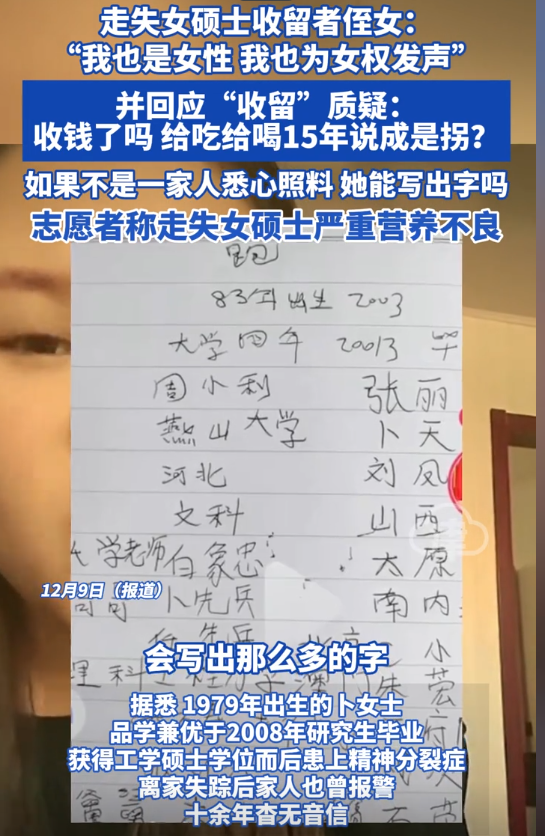 走失女硕士收留者侄女：
“我也是女性 我也为女权发声”
并回应“收留”质疑：
收钱了吗 给吃给喝15年说成是拐？
如果不是一家人悉心照料 她能写出字吗
志愿者称走失女硕士严重营养不良
83年出生 2003
大学四年 20013 毕
周小利 张丽
燕山大学 卜天
河北 刘凤
文科 山西
大学老师 白象忠 太原
12月9日（报道）
卜先兵 南内
小
理科
会写出那么多的字
据悉 1979年出生的卜女士
品学兼优于2008年研究生毕业
获得工学硕士学位而后患上精神分裂症
离家失踪后家人也曾报警
十余年杳无音信